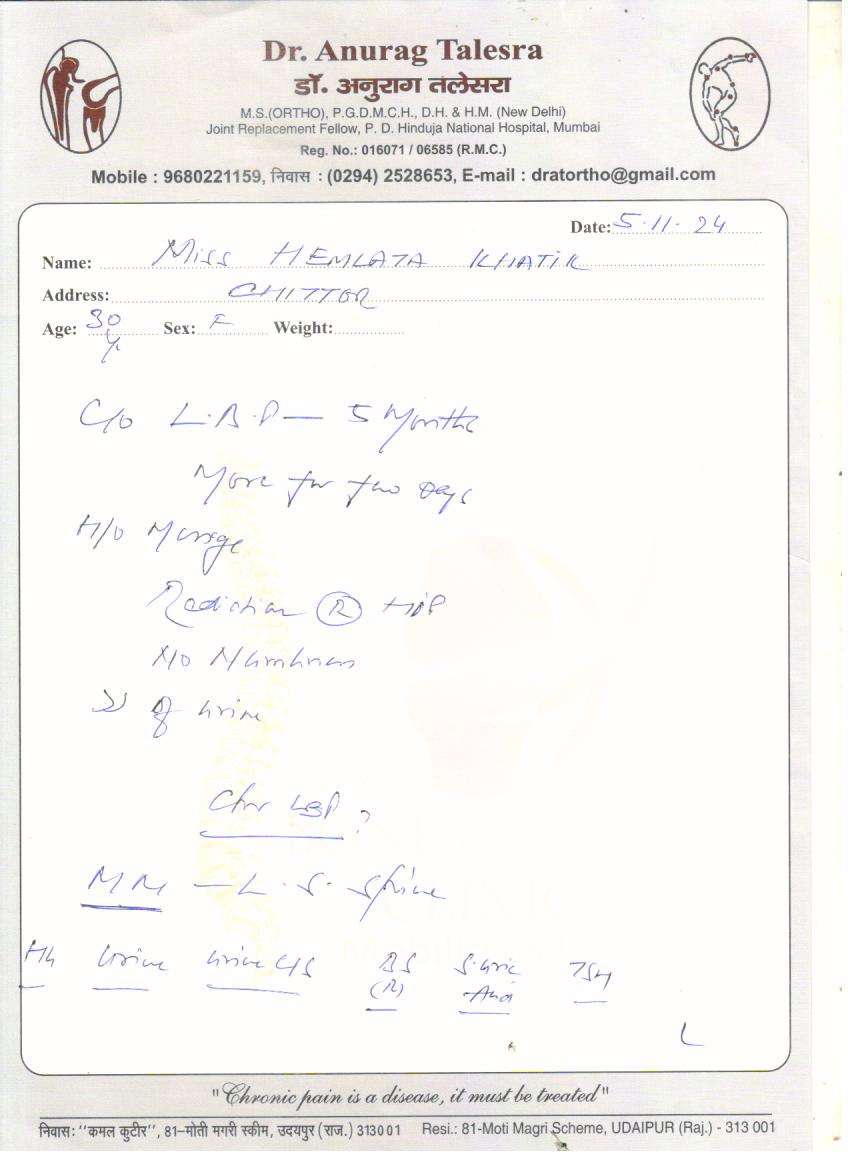 Dr. Anurag Talesra
डॉ. अनुराग तलेसरा
M.S.(ORTHO), P.G.D.M.C.H., D.H. & H.M. (New Delhi)
Joint Replacement Fellow, P. D. Hinduja National Hospital, Mumbai
Reg. No.: 016071 / 06585 (R.M.C.)
Mobile : 9680221159, निवास : (0294) 2528653, E-mail : dratortho@gmail.com
Date: 5.11.24
Name: Miss HEMLATA KHATIK
Address: CHITTOR
Age: 30 Yr Sex: F Weight:
C/o L.B.P — 5 Months
More for two Days
H/O
Radiation (R) HIP
N/O Numbness
of Urine
Chr LBP ?
— L.S. Spine
Hb Urine Urine C/S BS (R) S. Uric Acid TSH
"Chronic pain is a disease, it must be treated"
निवास: "कमल कुटीर", 81-मोती मगरी स्कीम, उदयपुर (राज.) 313001 Resi.: 81-Moti Magri Scheme, UDAIPUR (Raj.) - 313 001